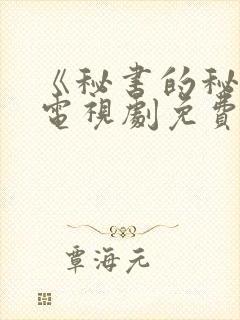 《秘書的秘
電視劇免費
覃海元